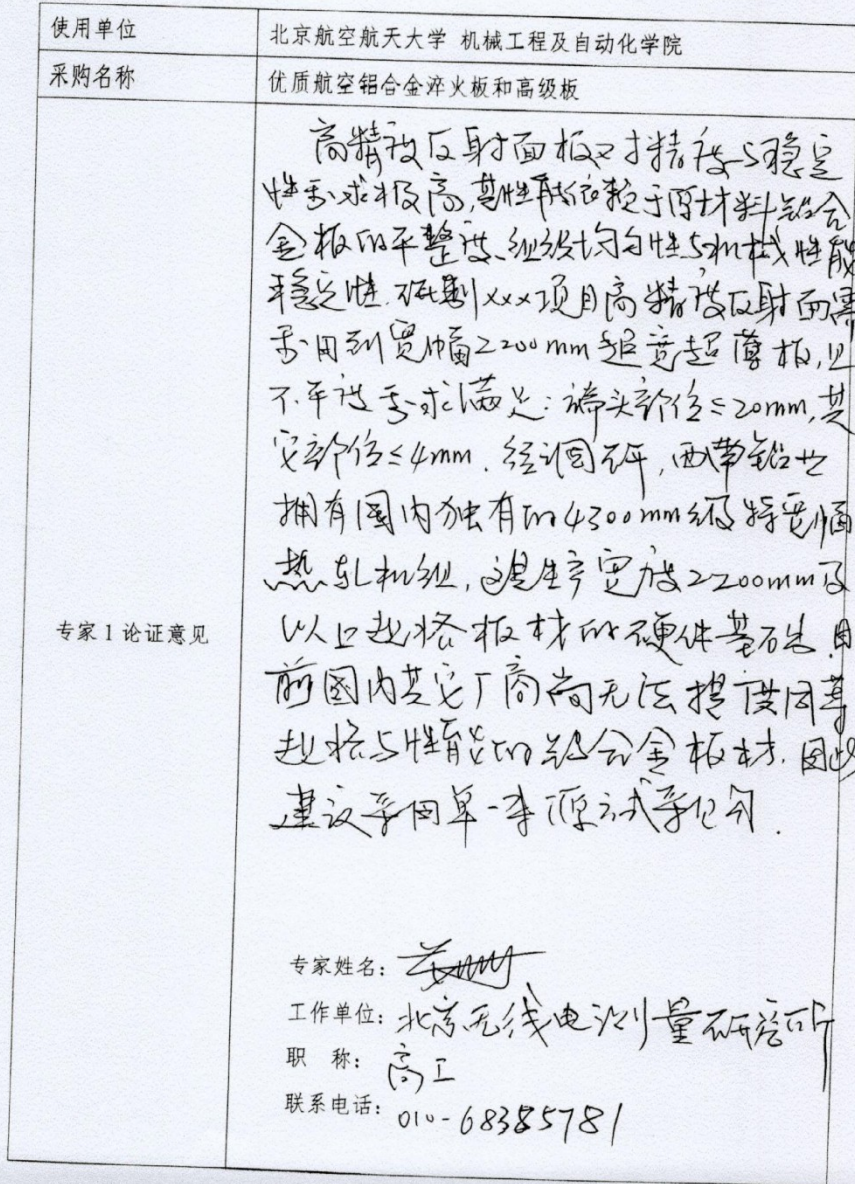 使用单位 北京航空航天大学 机械工程及自动化学院
采购名称 优质航空铝合金淬火板和高级板
专家1论证意见
高精度反射面板对精度与稳定
性要求极高,其性能依赖于原材料铝合
金板的平整度、组织均匀性与机械性能
稳定性.研制xxx项目高精度反射面需
要用到宽幅2200mm超宽超薄板,且
不平度要求满足:端头部位≤20mm,其
它部位≤4mm.经调研,西南铝业
拥有国内独有的4300mm级特宽幅
热轧机组,这是生产宽度2200mm及
以上规格板材的硬件基础.目
前国内其它厂商尚无法提供同等
规格与性能的铝合金板材.因此
建议采用单一来源方式采购.
专家姓名:
工作单位:北京无线电测量研究所
职 称:高工
联系电话:010-68385781